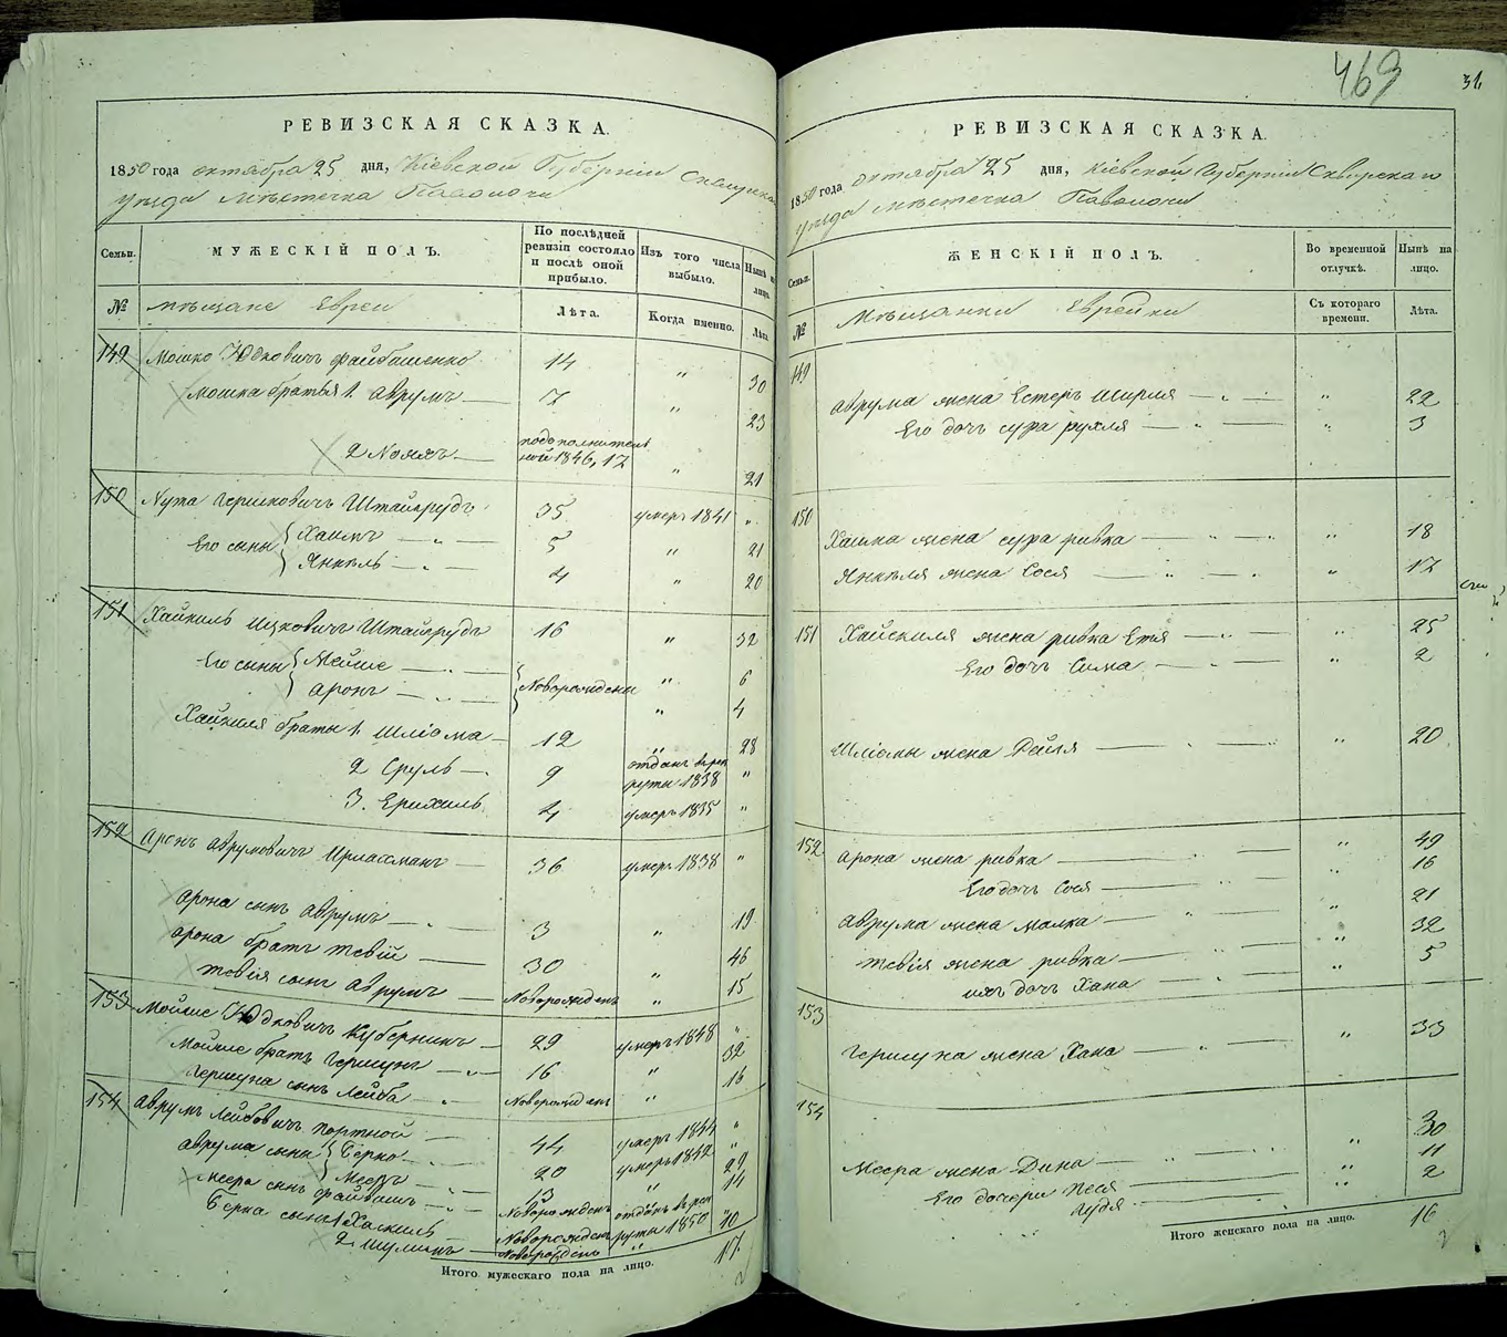 469
31
РЕВИЗСКАЯ СКАЗКА.
1850 года октября 25 дня, Кіевской Губерніи Сквирскаго
уезда мѣстечка Паволочи
Семьи.
МУЖЕСКІЙ ПОЛЪ.
По послѣдней ревизіи состояло и послѣ оной прибыло.
Изъ того числа выбыло.
Нынѣ на лицо.
№
мѣщане Евреи
Лѣта.
Когда именно.
Лѣта
149 Мошко Юдковичъ Файбишенко 14 " 30
Мошка братья 1. Аврумъ 7 " 23
2 Нохимъ по дополнитель ной 1846, 17 " 21
150 Нута Гершковичъ Штайнрудъ 35 умеръ 1841 "
Его сыны Хаимъ 5 " 21
Янкель 4 " 20
151 Хайкиль Ицковичъ Штайнрудъ 16 " 32
Его сыны Мейше Новорожденн " 6
Аронъ " 4
Хайкиля братья 1. Шліома 12 " 28
2 Сруль 9 отданъ в рек руты 1838 "
3. Ерихиль 4 умеръ 1835 "
152 Аронъ Аврумовичъ 36 умеръ 1838 "
Арона сынъ Аврумъ 3 " 19
Арона братъ Тевій 30 " 46
Тевія сынъ Аврумъ Новорожденъ " 15
153 Мойше Юдковичъ Куберникъ 29 умеръ 1848 "
Мойше братъ Гершунъ 16 " 32
Гершуна сынъ Лейба Новорожденъ " 16
154 Аврумъ Лейбовичъ Портной 44 умеръ 1844 "
Аврума сыны Берко 20 умеръ 1842 "
Мееръ 13 " 29
Меера сынъ Файвишъ Новорожденъ " 14
Берка сыны 1 Хаскиль Новорожденъ отданъ в рек руты 1850 "
2. Шулимъ Новорожденъ " 10
Итого мужескаго пола на лицо. 17.
РЕВИЗСКАЯ СКАЗКА.
1850 года октября 25 дня, Кіевской Губерніи Сквирскаго
уезда мѣстечка Паволочи
Семьи.
ЖЕНСКІЙ ПОЛЪ.
Во временной отлучкѣ.
Нынѣ на лицо.
№
Мѣщанки Еврейки
Съ котораго времени.
Лѣта.
149
Аврума жена Естеръ Ширля " 22
Его дочь Сура Рухля " 3
150
Хаима жена Сура Ривка " 18
Янкеля жена Сося " 17
151 Хайскиля жена Ривка Етя " 25
Его дочь Сима " 2
Шліомы жена Рейзя " 20
152 Арона жена Ривка " 49
Его дочь Сося " 16
Аврума жена Малка " 21
Тевія жена Ривка " 32
ихъ дочь Хана " 5
153
Гершуна жена Хана " 33
154
Меера жена Дина " 30
Его дочери Песя " 11
Гудя " 2
Итого женскаго пола на лицо. 16